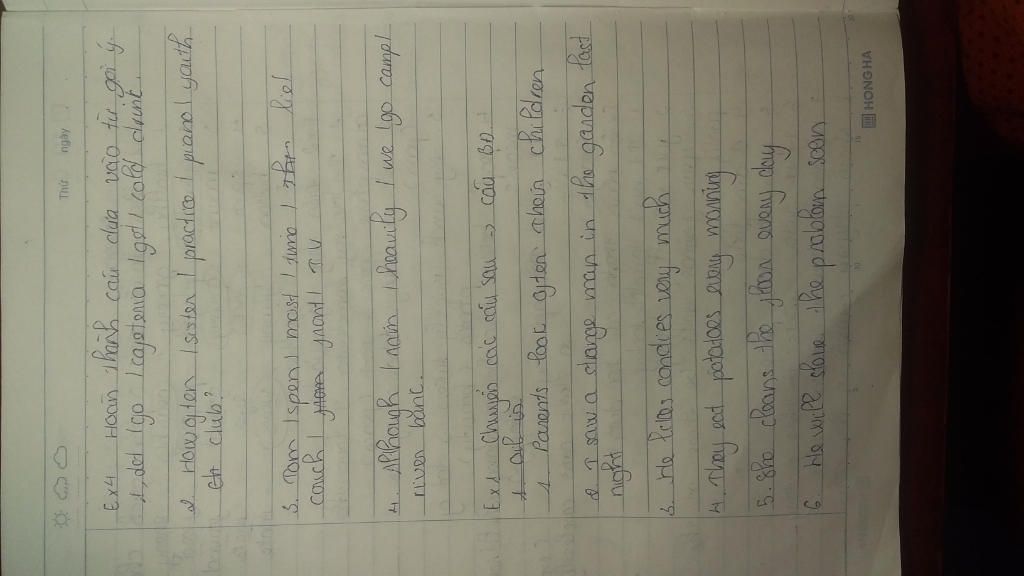 Thứ ngày
Ex4 Hoàn thành câu dựa vào từ gợi ý.
1, let / go / cafeteria / get / cold drink.
2 How often / sister / practice / piano / youth
club?
3. Tom / spen / most / time / lie/
couch / front / TV
4. Although / rain / heavily / we / go camp/
river bank.
Ex1 Chuyển các câu sau -> câu BĐ.
1. Parents look after their children
2. I saw a strange man in the garden last
night
3. He likes candies very much
4. They eat potatoes every morning
5. She cleans the floor every day
6 He will solve the problem soon
HONG HA